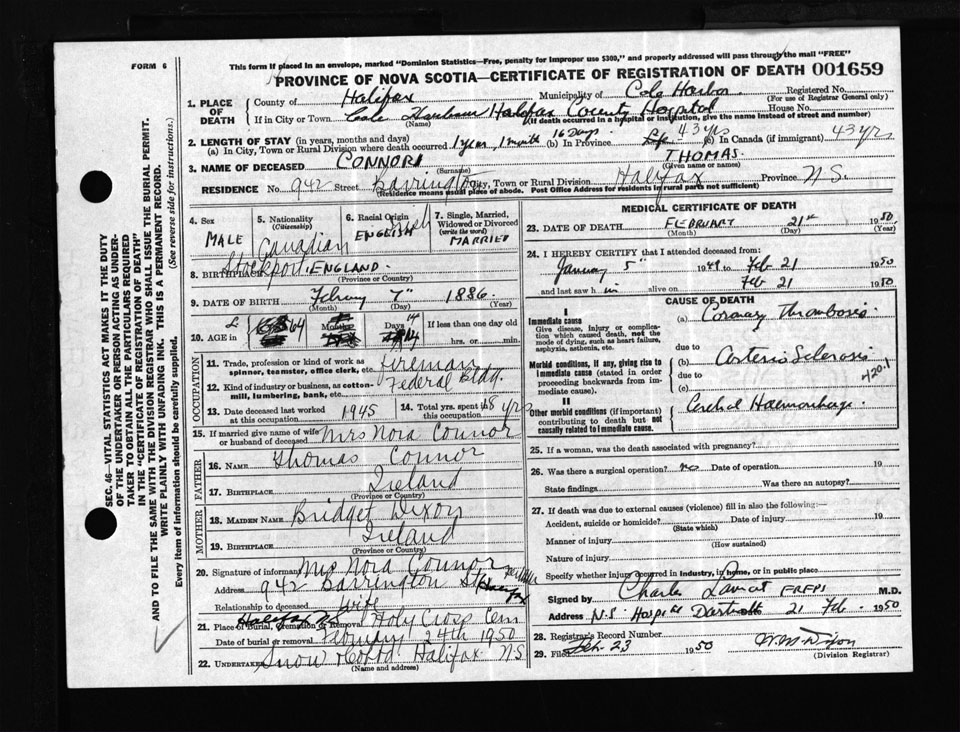 FORM 6
This form if placed in an envelope, marked "Dominion Statistics—Free, penalty for improper use $300," and properly addressed will pass through the mail "FREE"
PROVINCE OF NOVA SCOTIA—CERTIFICATE OF REGISTRATION OF DEATH 001659
1. PLACE OF DEATH
County of Halifax Municipality of Cole Harbor Registered No.
(For use of Registrar General only)
If in City or Town Cole Harbour Halifax County Hospital House No.
(Name) (If death occurred in a hospital or institution, give the name instead of street and number)
2. LENGTH OF STAY (in years, months and days)
(a) In City, Town or Rural Division where death occurred 1 year, 1 month 16 Days (b) In Province Life 43 yrs (c) In Canada (if immigrant) 43 yrs
3. NAME OF DECEASED CONNOR THOMAS
(Surname) (Given name or names)
RESIDENCE No. 942 Street Barrington City, Town or Rural Division Halifax Province N.S.
(Residence means usual place of abode. Post Office Address for residents in rural parts not sufficient)
4. Sex MALE
5. Nationality (Citizenship) Canadian
6. Racial Origin ENGLISH Irish
7. Single, Married, Widowed or Divorced (write the word) MARRIED
8. BIRTHPLACE Stockport, ENGLAND.
(Province or Country)
9. DATE OF BIRTH 7" 1886
(Month) (Day) (Year)
10. AGE in 64 Months Days 14 If less than one day old
hrs. or min.
OCCUPATION
11. Trade, profession or kind of work as spinner, teamster, office clerk, etc. Fireman
12. Kind of industry or business, as cotton-mill, lumbering, bank, etc. Federal Bldg.
13. Date deceased last worked at this occupation 1945
14. Total yrs. spent in this occupation 18 yrs
15. If married give name of wife or husband of deceased Mrs Nora Connor
FATHER
16. Name Thomas Connor
17. Birthplace Ireland
(Province or Country)
MOTHER
18. Maiden Name Bridget Dixon
19. Birthplace Ireland
(Province or Country)
20. Signature of informant Mrs Nora Connor
Address 942 Barrington St Halifax
Relationship to deceased Wife
21. Place of Burial, Cremation or Removal Halifax NS Holy Cross Cem
Date of burial or removal February 24th 1950
22. Undertaker Snow & Co Ltd Halifax N.S
(Name and address)
MEDICAL CERTIFICATE OF DEATH
23. DATE OF DEATH FEBRUARY 21st 1950
(Month) (Day)
24. I HEREBY CERTIFY that I attended deceased from:
January 5" 1949 to Feb 21 1950
and last saw h im alive on Feb 21 1950
CAUSE OF DEATH
I
Immediate cause
Give disease, injury or complication which caused death, not the mode of dying, such as heart failure, asphyxia, asthenia, etc.
(a) Coronary Thrombosis
due to
Morbid conditions, if any, giving rise to immediate cause (stated in order proceeding backwards from immediate cause).
(b) Arterio Sclerosis
due to
(c) 420.1
II
Other morbid conditions (if important) contributing to death but not causally related to immediate cause.
Cerebral Haemorrhage
25. If a woman, was the death associated with pregnancy?
26. Was there a surgical operation? no Date of operation 19
State findings Was there an autopsy?
27. If death was due to external causes (violence) fill in also the following:—
Accident, suicide or homicide? Date of injury 19
(State which)
Manner of injury
(How sustained)
Nature of injury
Specify whether injury occurred in industry, in home, or in public place
Signed by Charles Lamont M.D.
Address N.S. Hospital 21 Feb - 1950
28. Registrar's Record Number
29. Filed Feb. 23 1950 W.M. Dixon
(Division Registrar)
SEC. 46—VITAL STATISTICS ACT MAKES IT THE DUTY
OF THE UNDERTAKER OR PERSON ACTING AS UNDER-
TAKER TO OBTAIN ALL THE PARTICULARS REQUIRED
IN THE "CERTIFICATE OF REGISTRATION OF DEATH"
AND TO FILE THE SAME WITH THE DIVISION REGISTRAR WHO SHALL ISSUE THE BURIAL PERMIT.
WRITE PLAINLY WITH UNFADING INK. THIS IS A PERMANENT RECORD.
Every item of information should be carefully supplied. (See reverse side for instructions.)